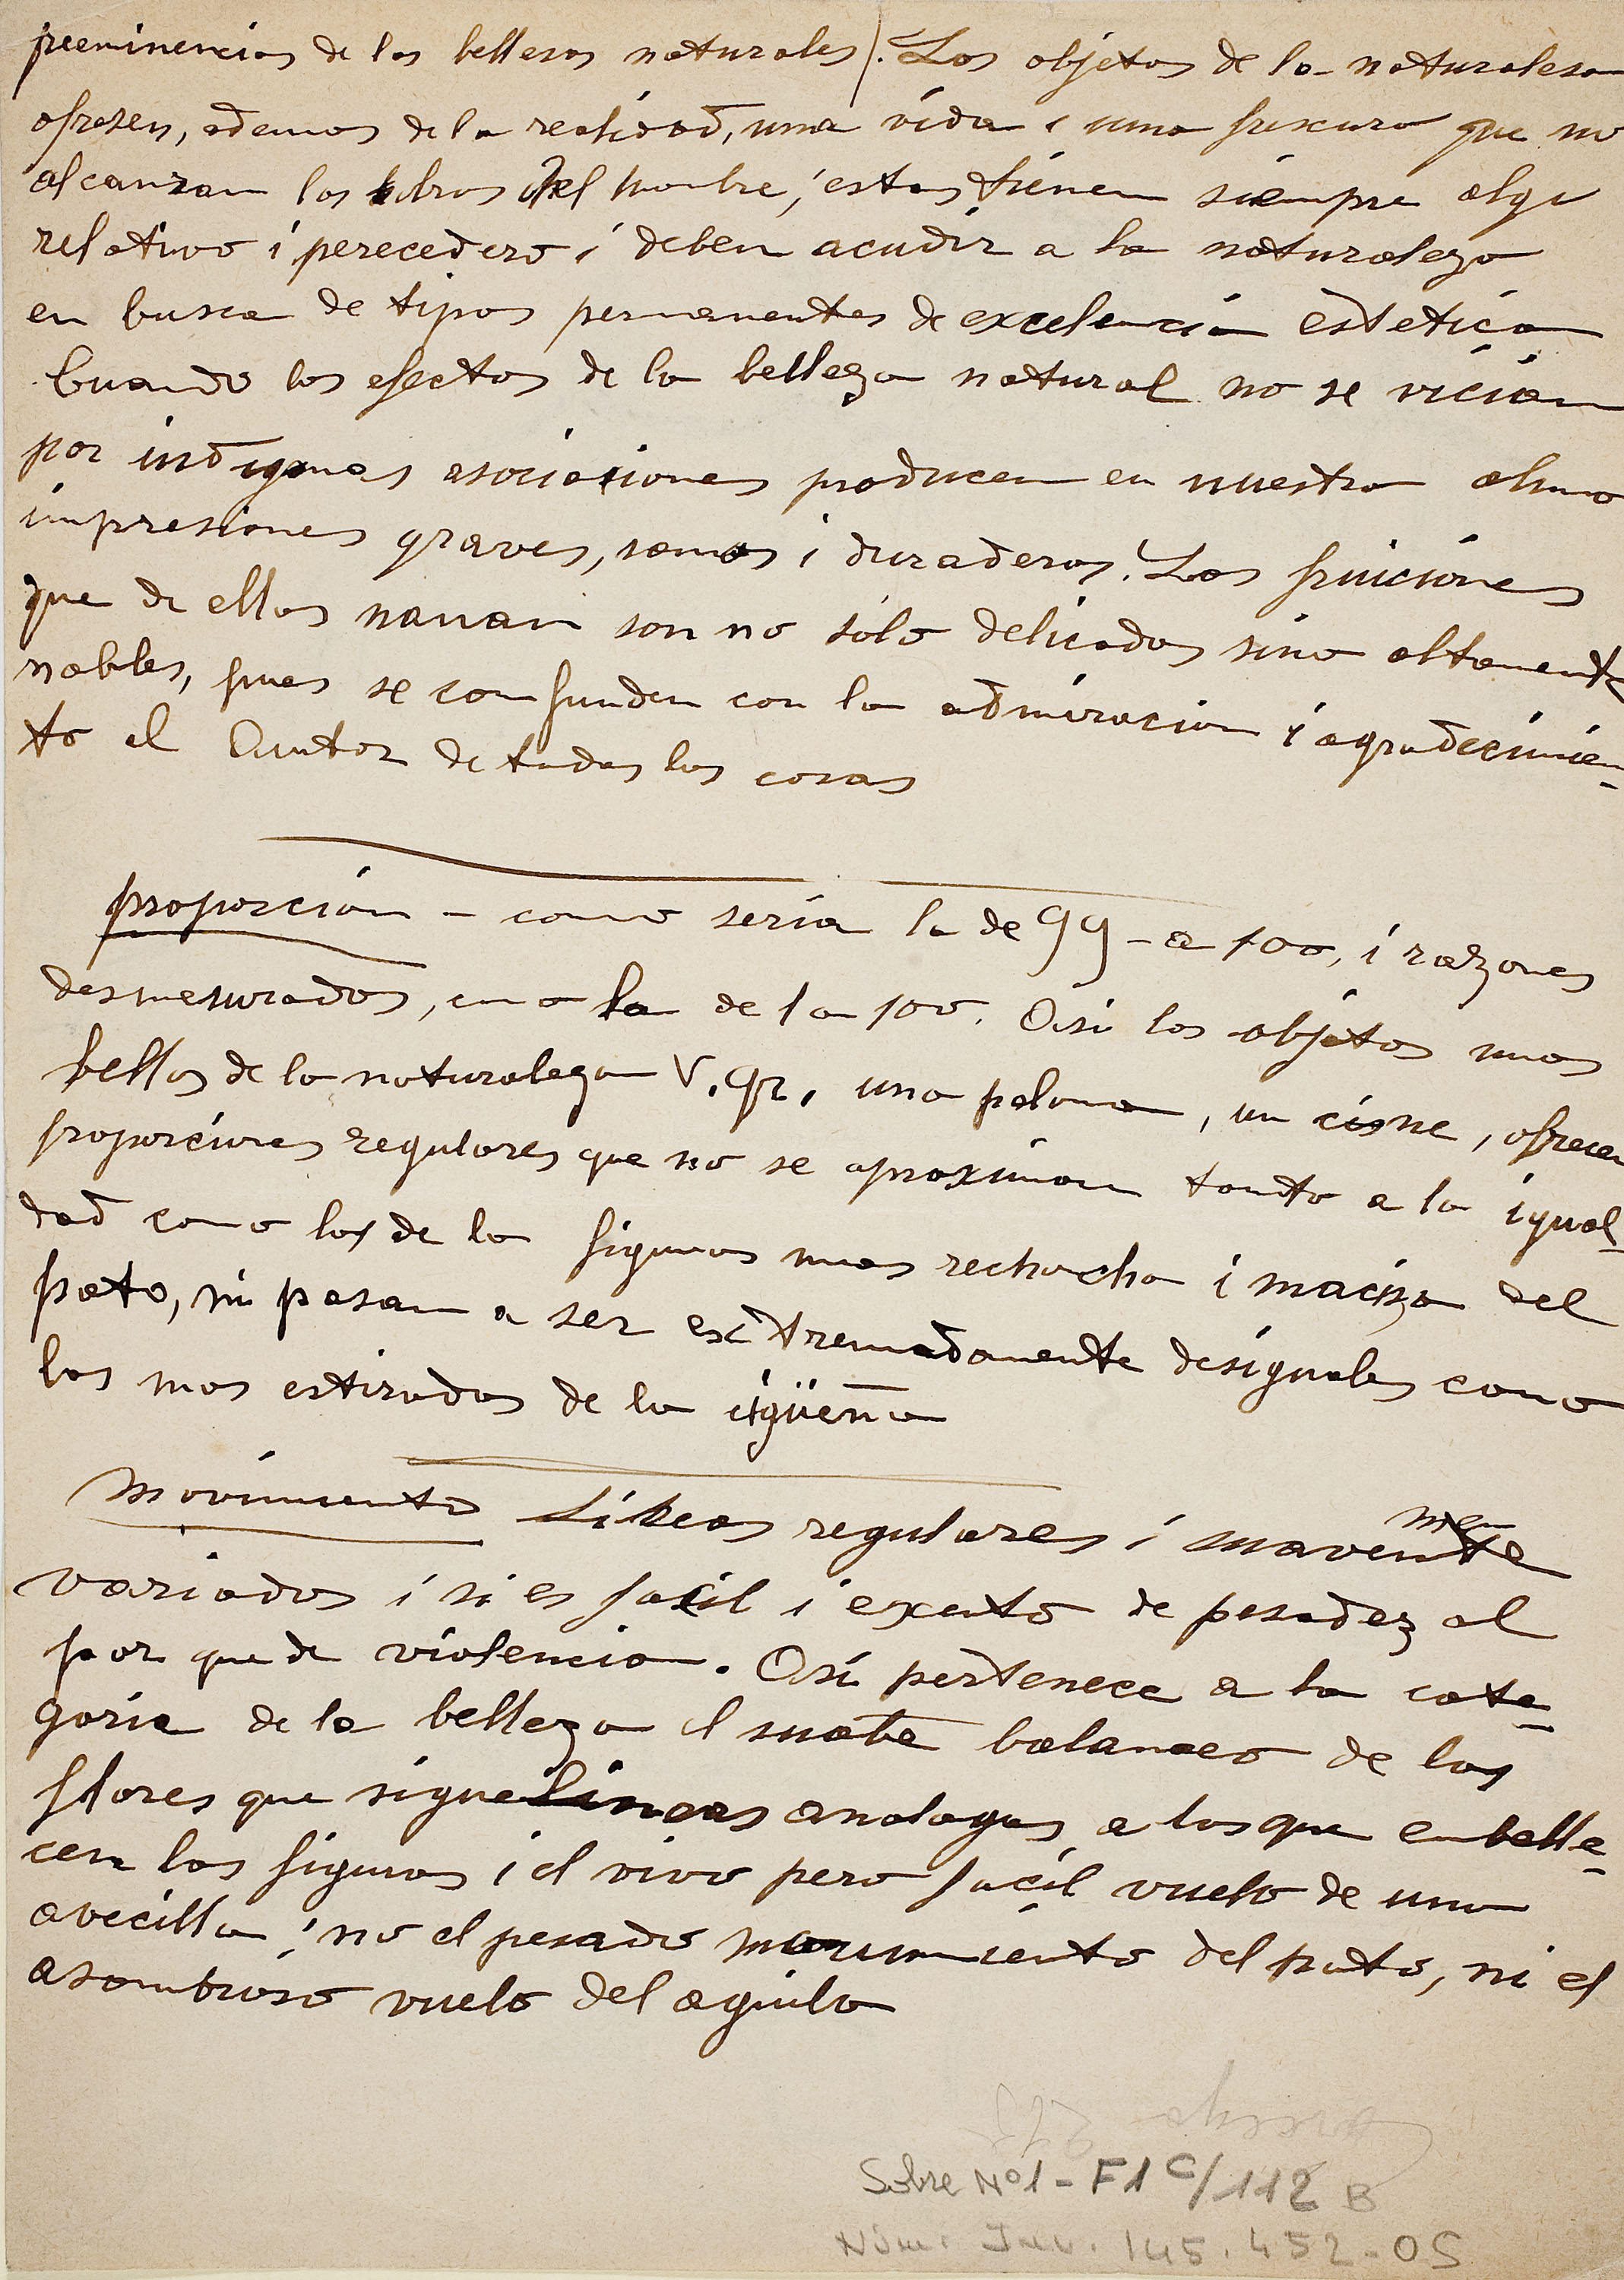 preeminencias de las bellesas naturales). Los objetos de la naturalesa
ofresen, ademas de la realidad, una vida i una frescura que no
alcanzan las obras del hombre; estas tienen siempre algo
relativo i perecedero i deben acudir a la naturaleza
en busca de tipos permanentes de excelencia estetica
Cuando los efectos de la belleza natural no se vician
por indignas asociaciones producen en nuestra alma
impresiones graves, sanas i duraderas. Las fruiciones
que de ellas manan son no sólo delicadas sino altamente
nobles, pues se confunden con la admiracion i agradecimien-
to al Autor de todas las cosas
proporción - como sería la de 99 - a 100, i razones
desmesuradas, como la de 1 a 100. Asi los objetos mas
bellos de la naturaleza V. gr. una paloma, un cisne, ofrecen
proporciones regulares que no se aproximan tanto a la igual-
dad como las de la figuras mas rechoncha i maciza del
pato, ni pasan a ser extremadamente desiguales como
las mas estiradas de la cigüeña
Movimiento Líneas regulares i suavemente
variadas i si es facil i exento de pesadez al
par que de violencia. Asi pertenece a la cate-
goria de la belleza el suave balanceo de las
flores que sigue lineas analogas a las que enbelle-
cen las figuras i el vivo pero facil vuelo de una
avecilla; no el pesado movimiento del pato, ni el
asombroso vuelo del aguila
Sobre Nº1 - F1 C/112 B
Núm. Inv. 145.452-OS